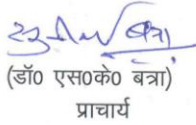 (डॉ0 एस0के0 बत्रा)
प्राचार्य